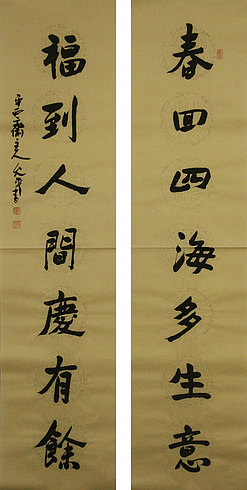 春回四海多生意
福到人間慶有餘